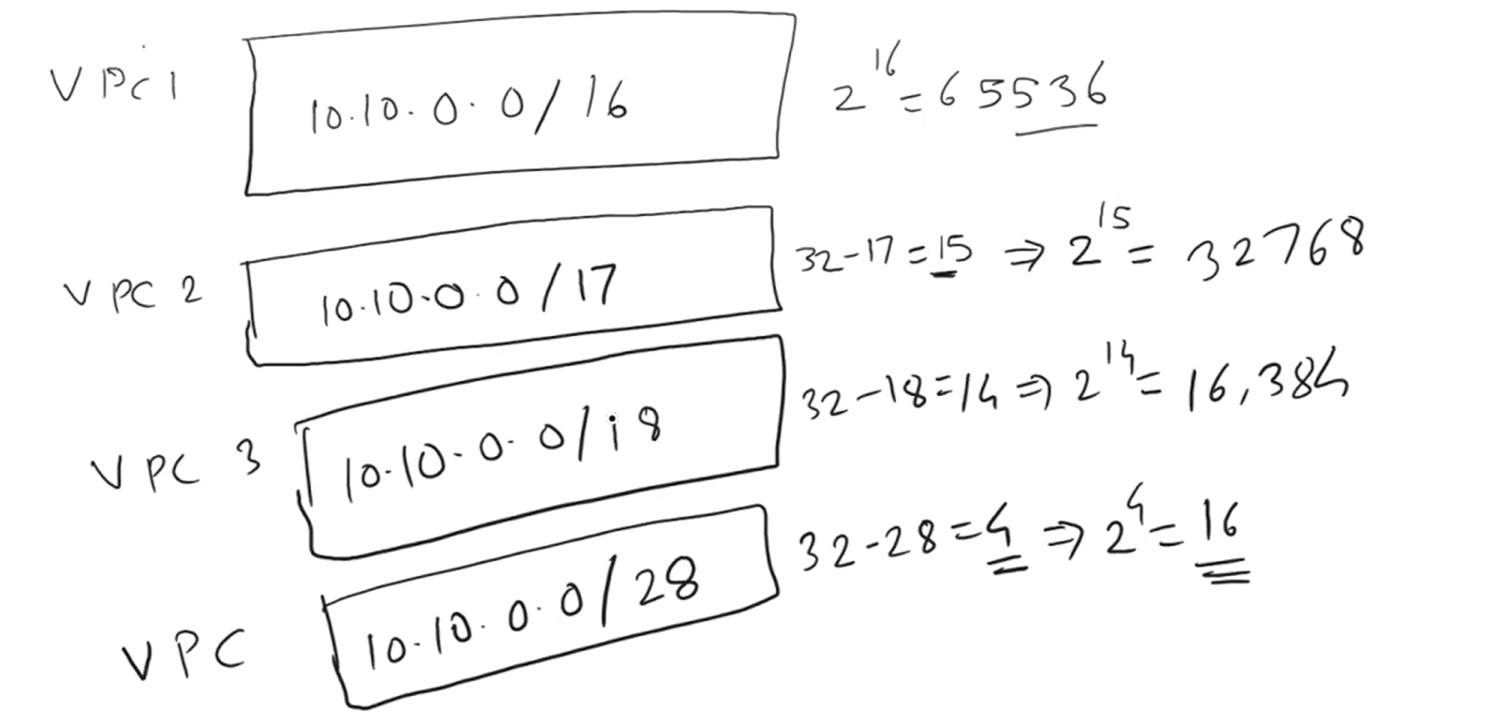 VPC1 10.10.0.0/16 2^16 = 65536
VPC 2 10.10.0.0/17 32-17=15 ⇒ 2^15 = 32768
VPC 3 10.10.0.0/i8 32-18=14 ⇒ 2^14 = 16,384
VPC 10.10.0.0/28 32-28=4 ⇒ 2^4 = 16